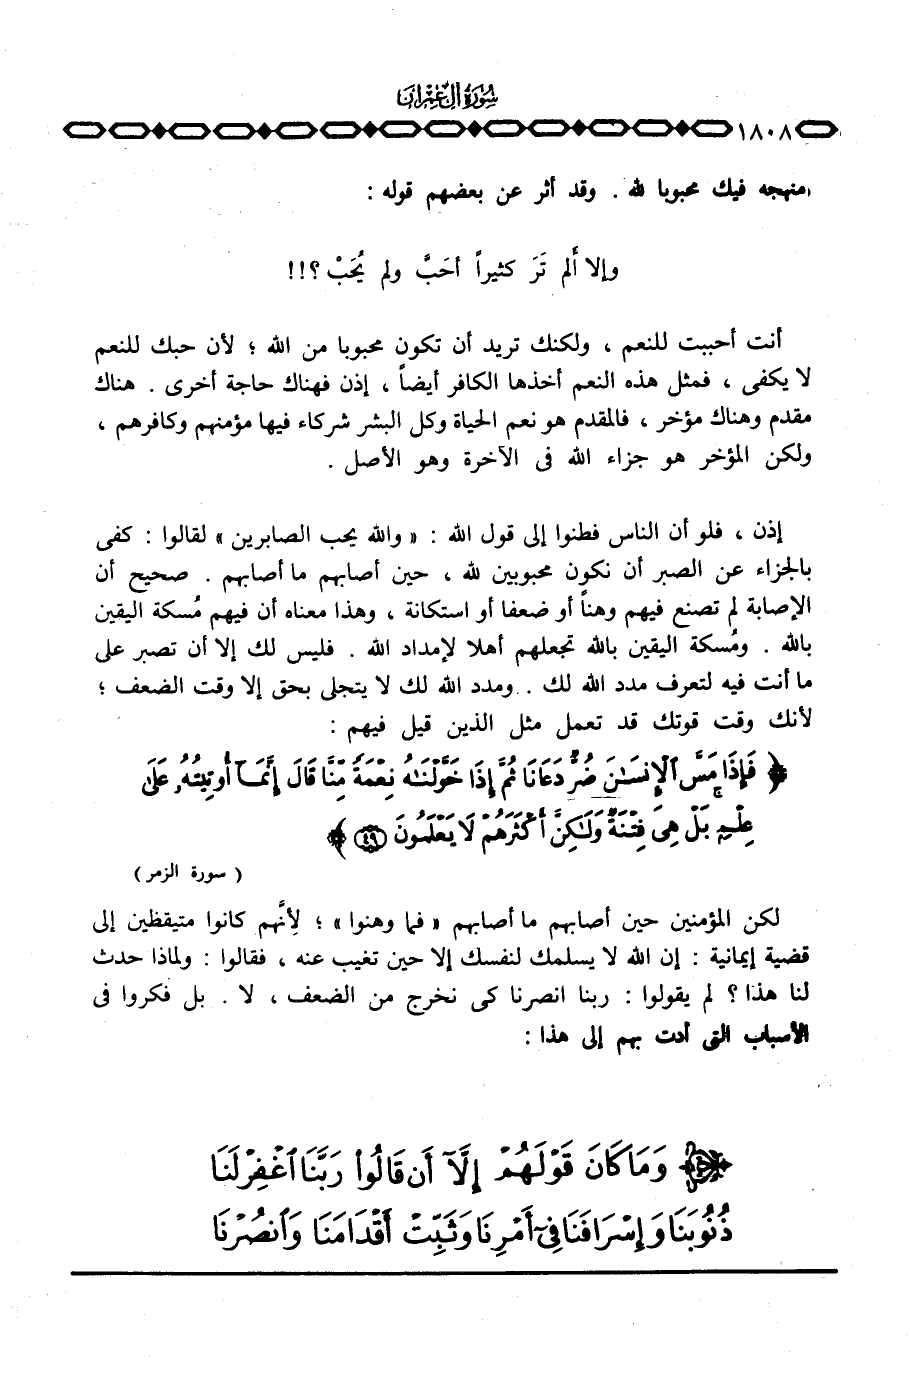 سُورَةُ آلِ عِمْرَانَ
١٨٠٨
منهجه فيك محبوبا لله . وقد أثر عن بعضهم قوله :
وإلا أَلم تَرَ كثيراً أحَبَّ ولم يُحَبْ ؟!!
أنت أحببت للنعم ، ولكنك تريد أن تكون محبوبا من الله ؛ لأن حبك للنعم
لا يكفى ، فمثل هذه النعم أخذها الكافر أيضاً ، إذن فهناك حاجة أخرى . هناك
مقدم وهناك مؤخر ، فالمقدم هو نعم الحياة وكل البشر شركاء فيها مؤمنهم وكافرهم ،
ولكن المؤخر هو جزاء الله فى الآخرة وهو الأصل .
إذن ، فلو أن الناس فطنوا إلى قول الله : « والله يحب الصابرين » لقالوا : كفى
بالجزاء عن الصبر أن نكون محبوبين لله ، حين أصابهم ما أصابهم . صحيح أن
الإصابة لم تصنع فيهم وهناً أو ضعفا أو استكانة ، وهذا معناه أن فيهم مُسكة اليقين
بالله . ومُسكة اليقين بالله تجعلهم أهلا لإمداد الله . فليس لك إلا أن تصبر على
ما أنت فيه لتعرف مدد الله لك . ومدد الله لك لا يتجلى بحق إلا وقت الضعف ؛
لأنك وقت قوتك قد تعمل مثل الذين قيل فيهم :
﴿ فَإِذَا مَسَّ ٱلْإِنسَـٰنَ ضُرٌّ دَعَانَا ثُمَّ إِذَا خَوَّلْنَـٰهُ نِعْمَةً مِّنَّا قَالَ إِنَّمَآ أُوتِيتُهُۥ عَلَىٰ
عِلْمٍۭ بَلْ هِىَ فِتْنَةٌ وَلَـٰكِنَّ أَكْثَرَهُمْ لَا يَعْلَمُونَ ﴿٤٩﴾ ﴾
( سورة الزمر )
لكن المؤمنين حين أصابهم ما أصابهم « فما وهنوا » ؛ لِأنَّهم كانوا متيقظين إلى
قضية إيمانية : إن الله لا يسلمك لنفسك إلا حين تغيب عنه ، فقالوا : ولماذا حدث
لنا هذا ؟ لم يقولوا : ربنا انصرنا كى نخرج من الضعف ، لا . بل فكروا فى
الأسباب التى أدت بهم إلى هذا :
﴿ وَمَا كَانَ قَوْلَهُمْ إِلَّآ أَن قَالُوا۟ رَبَّنَا ٱغْفِرْ لَنَا
ذُنُوبَنَا وَإِسْرَافَنَا فِىٓ أَمْرِنَا وَثَبِّتْ أَقْدَامَنَا وَٱنصُرْنَا